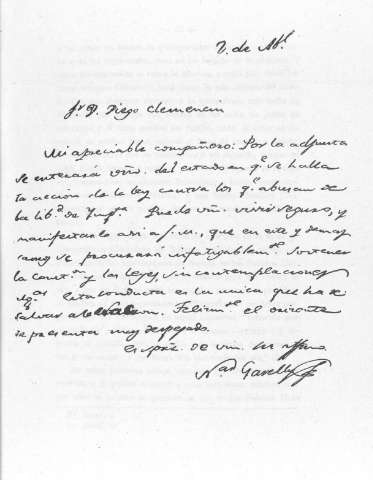 7. de Ab.l
S.r D. Diego Clemencin
Mi apreciable compañero: Por la adjunta
se enterará vm. del estado en q.e se halla
la acción de la ley contra los q.e abusan de
la lib.d de Imp.ta Puede vm. vivir seguro, y
manifestarlo asi a S. M., que en este y demas
ramos se procurará infatigablem.te sostener
la Const.n y las leyes, sin contemplaciones
Esta conducta es la unica que ha de
salvar a la Felizm.te el oriente
se presenta muy despejado.
Es siempre de vm. su affmo.
N. Garelly